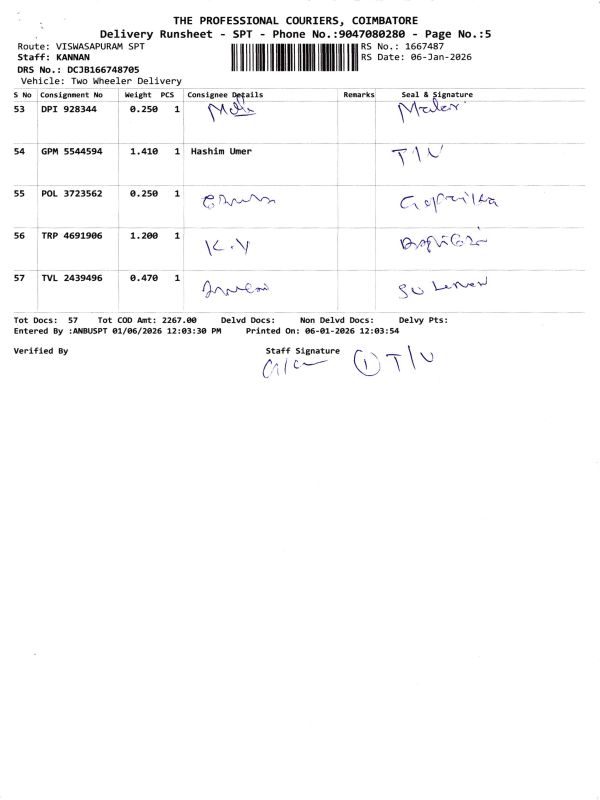 THE PROFESSIONAL COURIERS, COIMBATORE
Delivery Runsheet - SPT - Phone No.:9047080280 - Page No.:5
Route: VISWASAPURAM SPT RS No.: 1667487
Staff: KANNAN RS Date: 06-Jan-2026
DRS No.: DCJB166748705
Vehicle: Two Wheeler Delivery
S No Consignment No Weight PCS Consignee Details Remarks Seal & Signature
53 DPI 928344 0.250 1
54 GPM 5544594 1.410 1 Hashim Umer T/U
55 POL 3723562 0.250 1
56 TRP 4691906 1.200 1 K.V
57 TVL 2439496 0.470 1
Tot Docs: 57 Tot COD Amt: 2267.00 Delvd Docs: Non Delvd Docs: Delvy Pts:
Entered By :ANBUSPT 01/06/2026 12:03:30 PM Printed On: 06-01-2026 12:03:54
Verified By Staff Signature
1 T/U